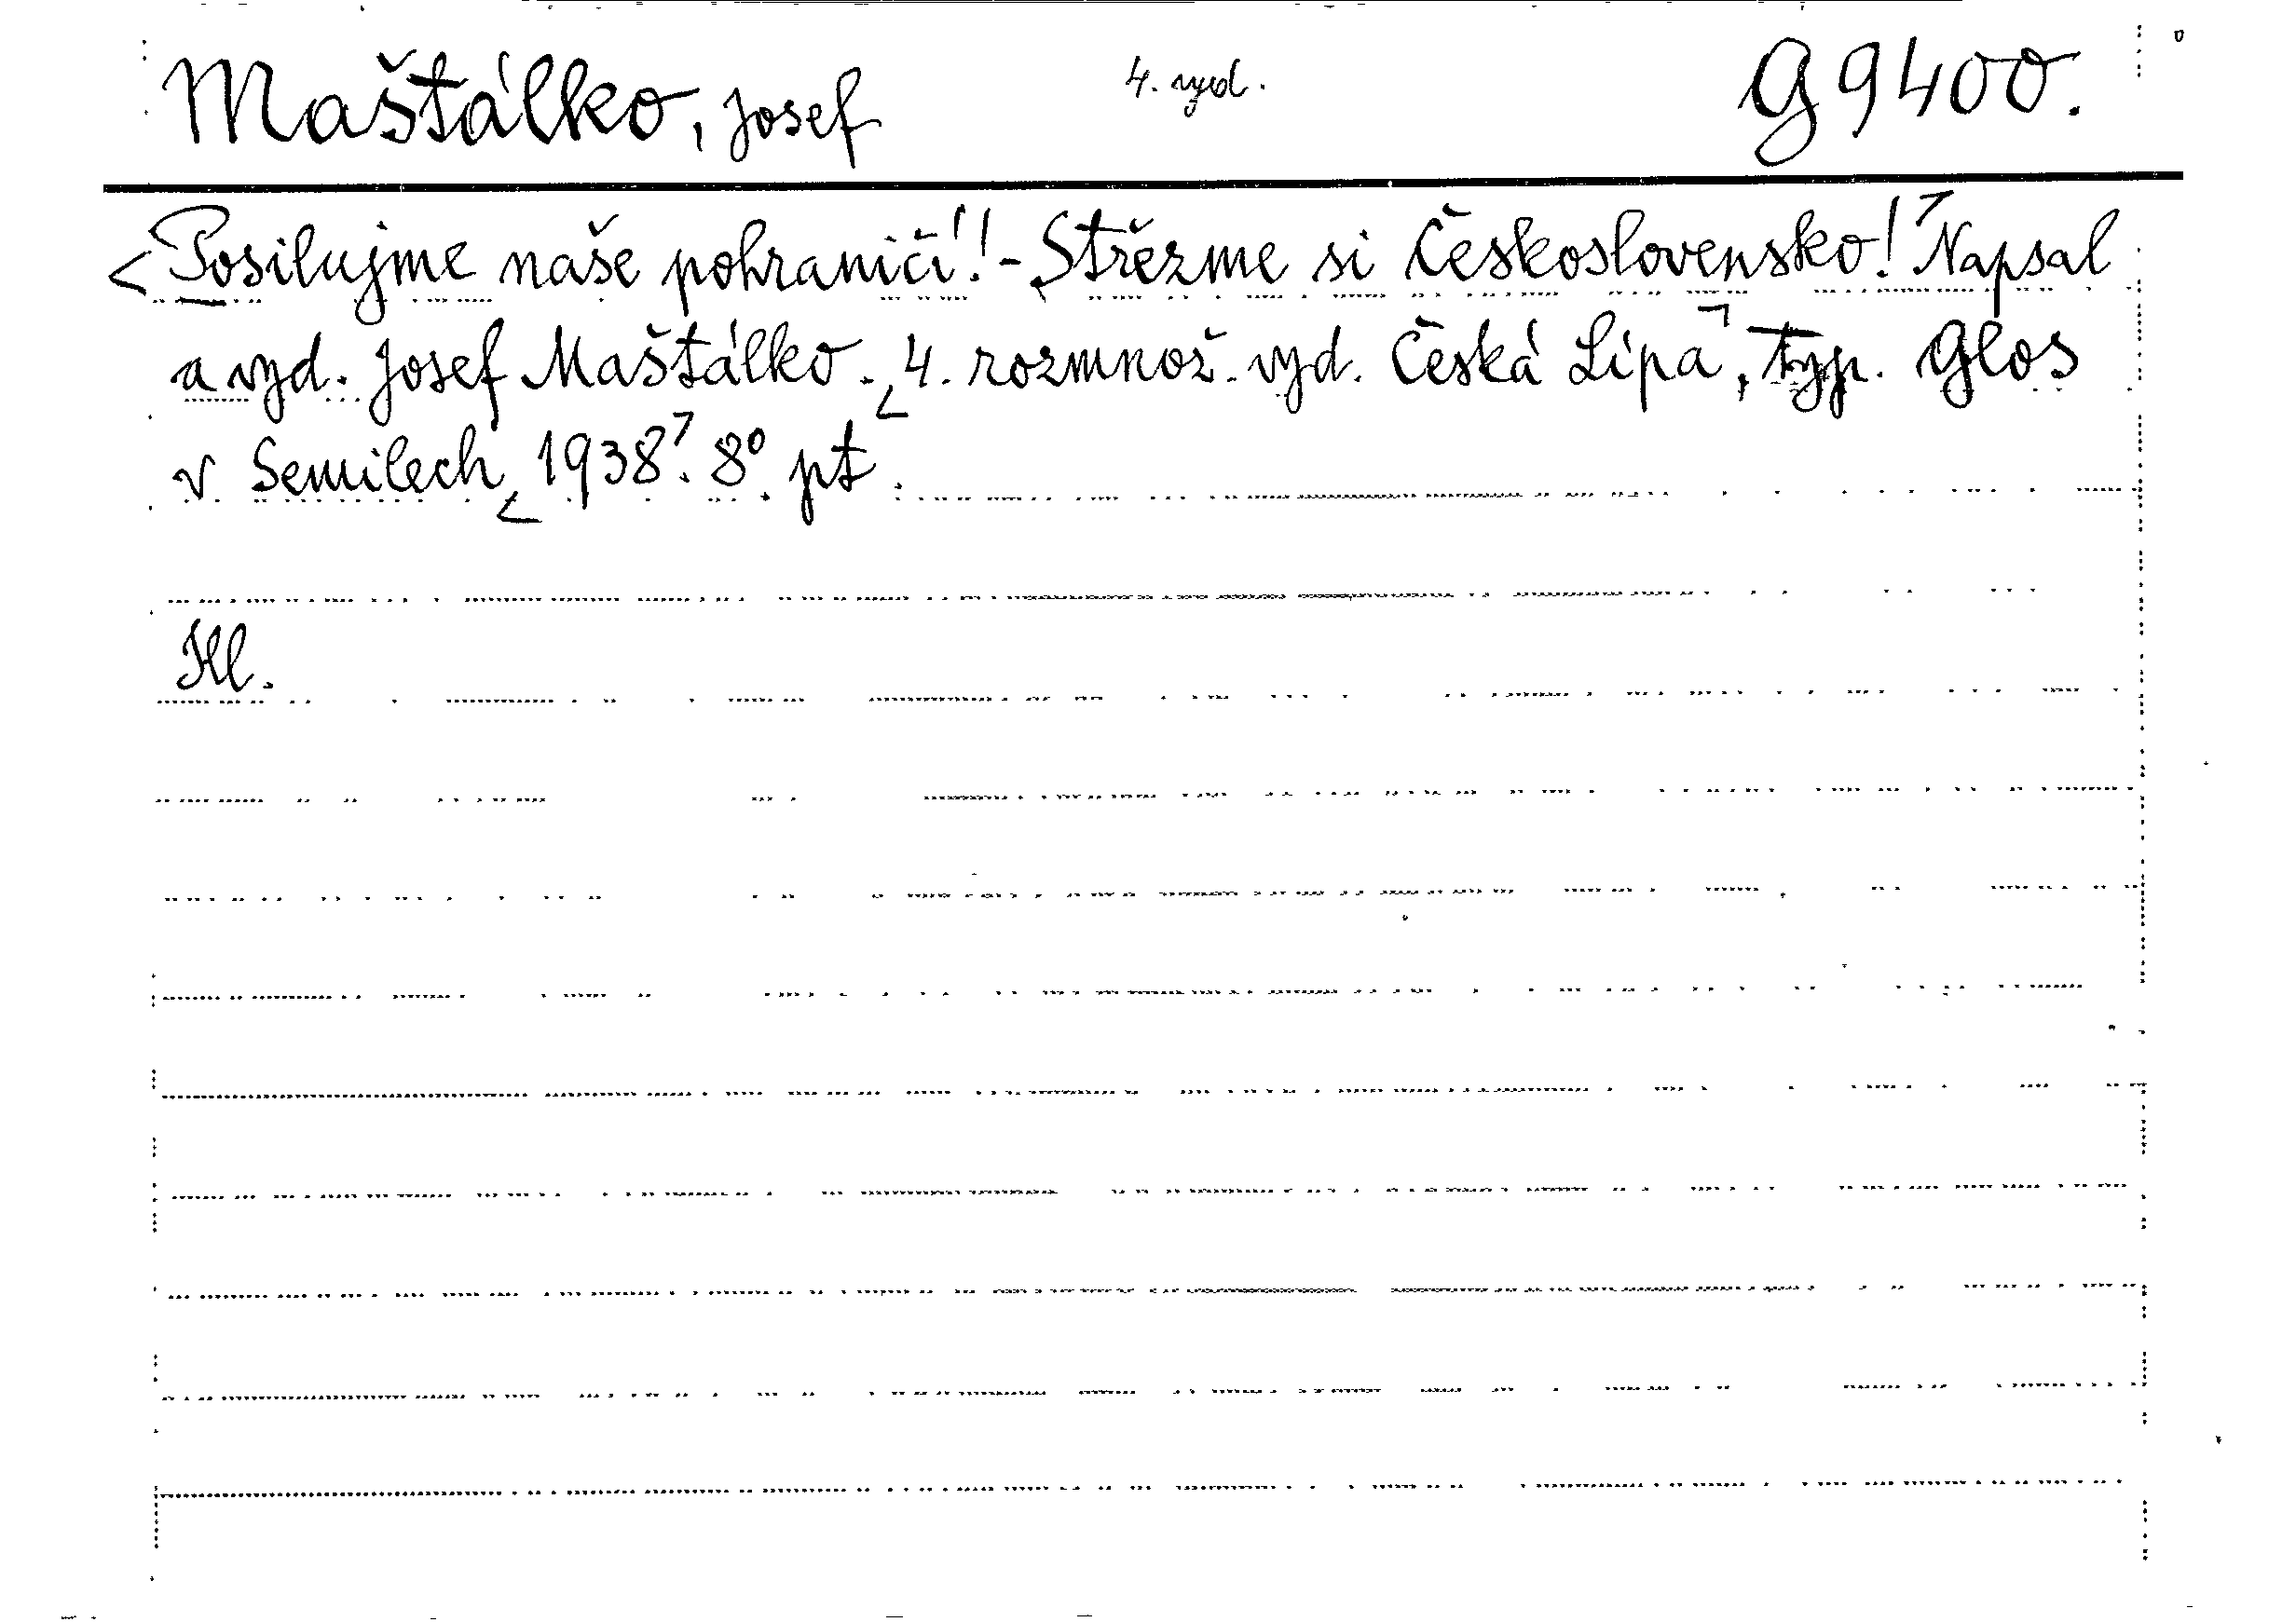 Maštálko, Josef 4. vyd. G 9400.
<Posilujme naše pohraničí! - Střězme si Československo!> Napsal
a vyd. Josef Maštálko. <4. rozmnož. vyd. Česká Lípa>, typ. Glos
v Semilech <1938>. 8° pt.
Kl.